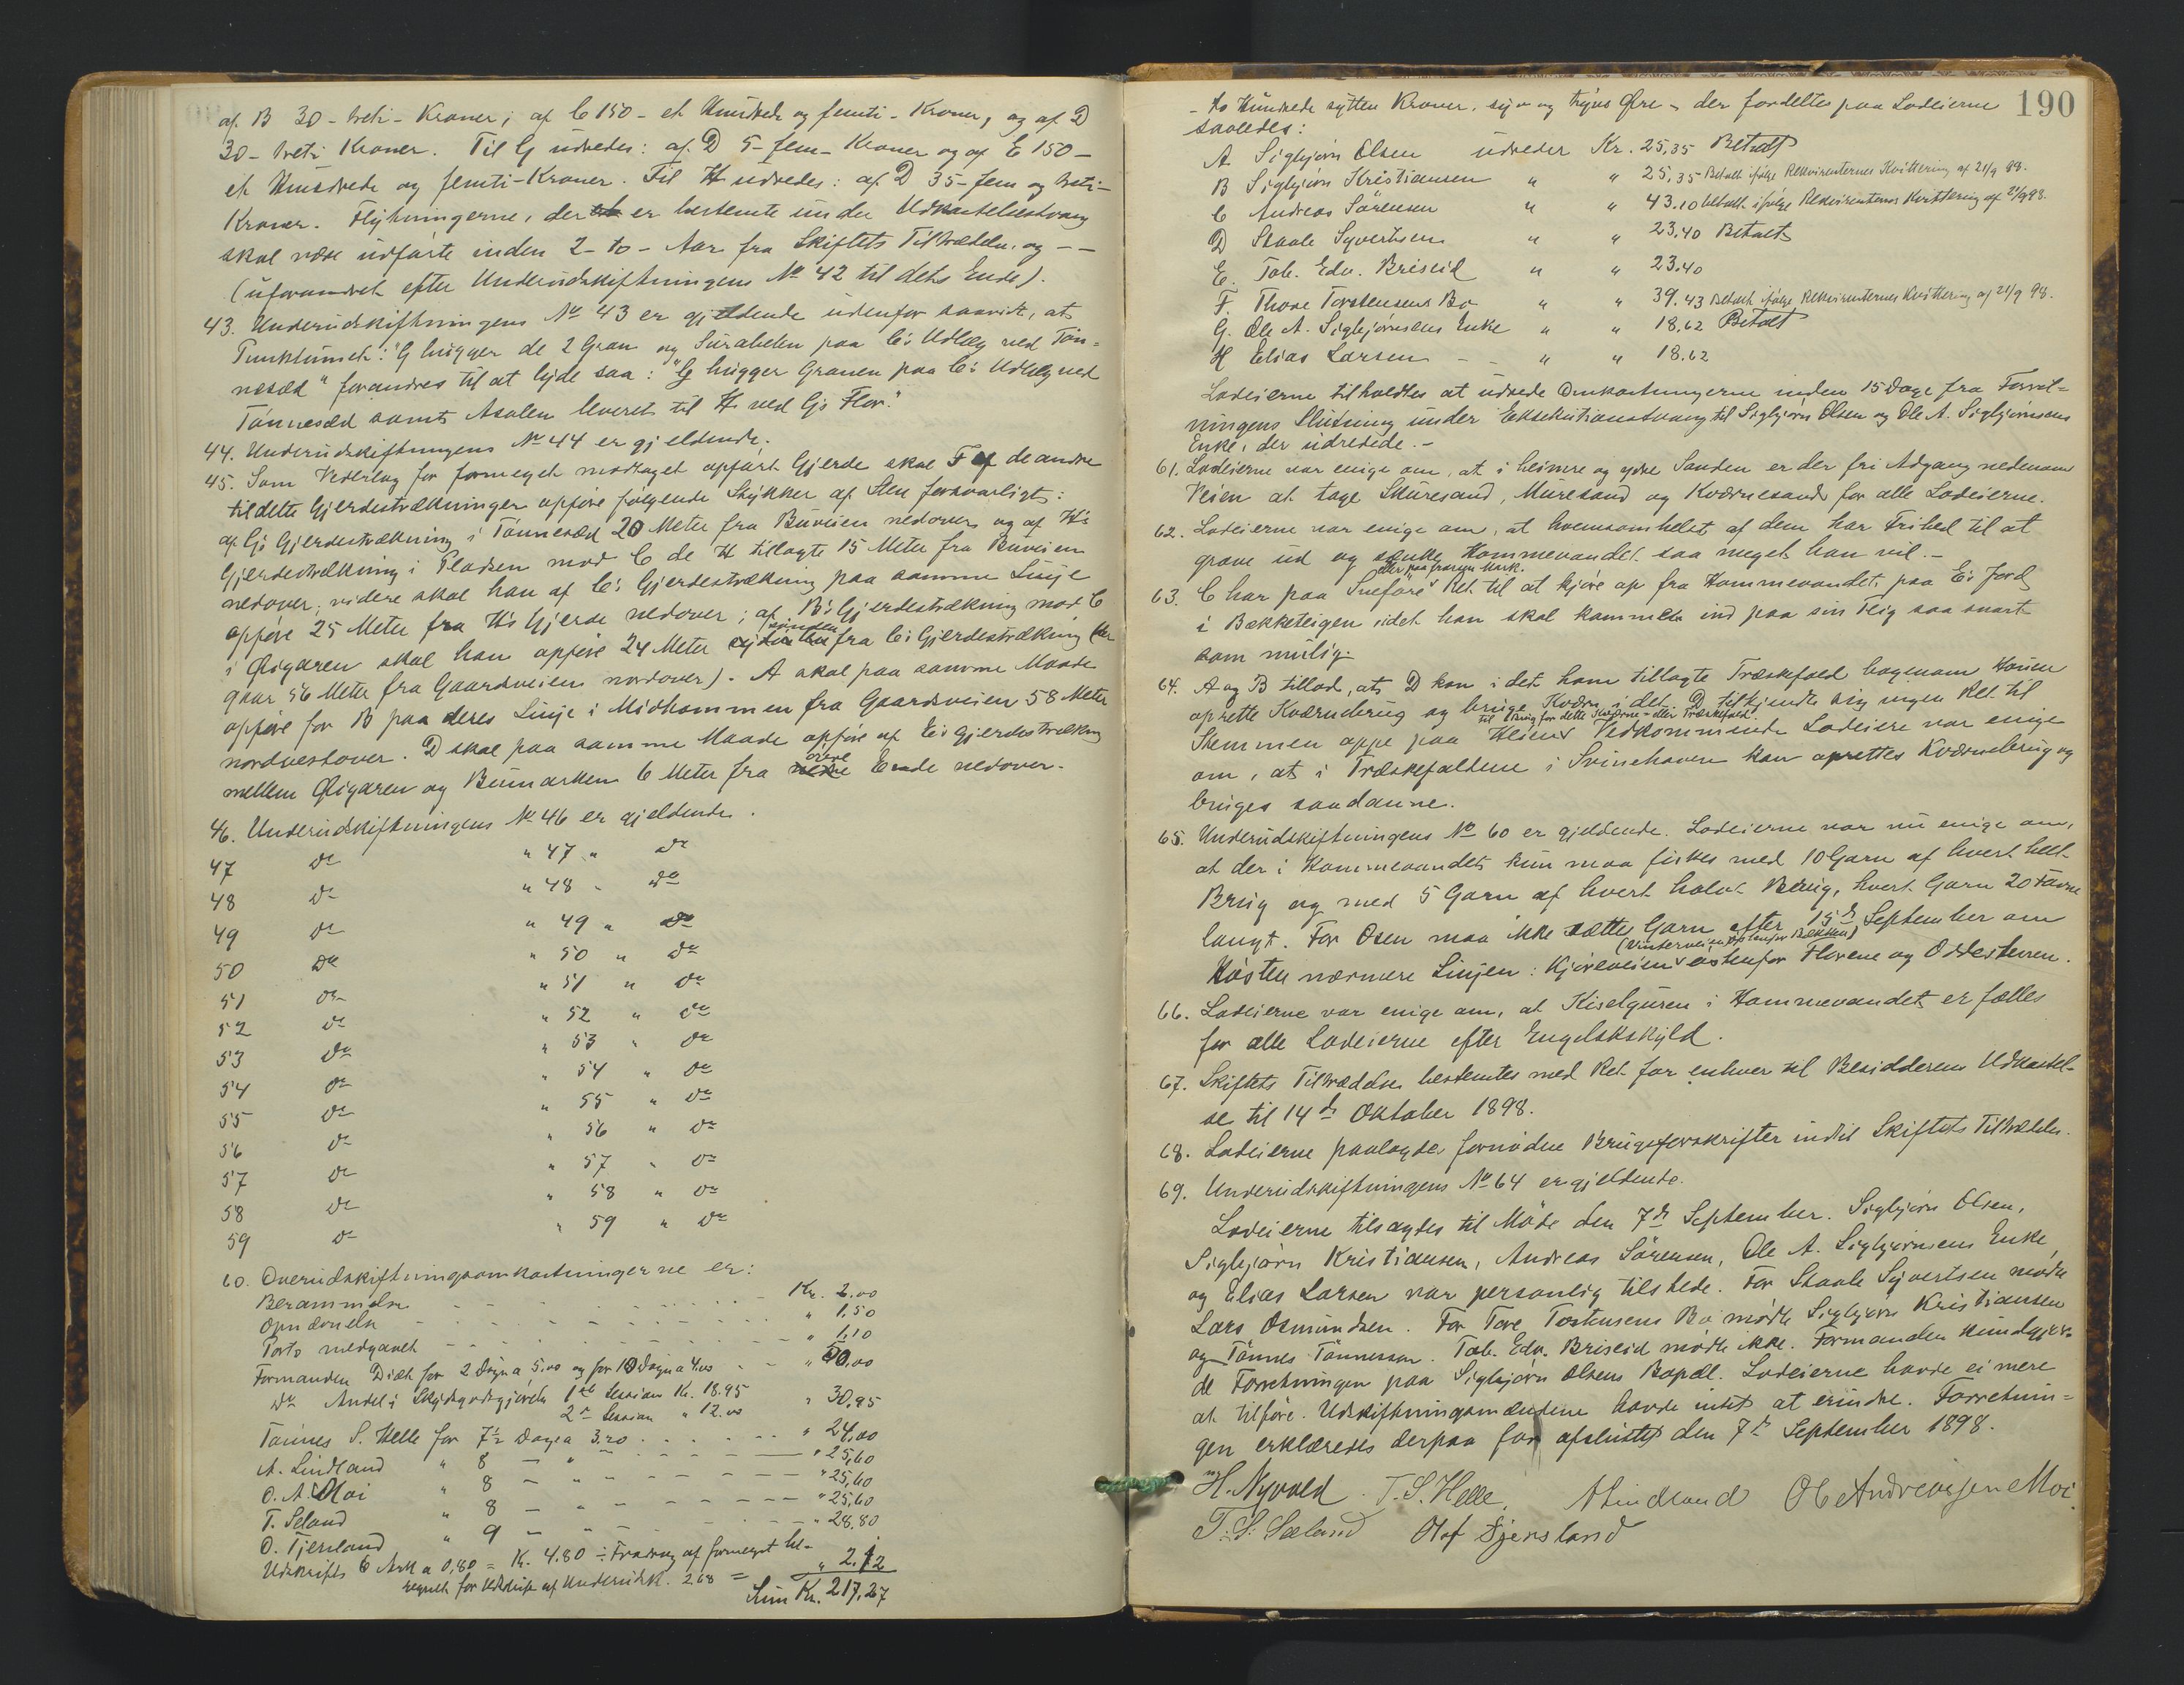 af B 30 - treti - Kroner; af C 150 - et Hundrede og femti - Kroner, og af D
30 - treti Kroner. Til G udredes: af D 5 - fem - Kroner og af E 150 -
et Hundrede og femti - Kroner. Til H udredes: af D 35 - fem og treti -
Kroner. Flytningerne, der er bestemte under Udkastelsestvang
skal være udførte inden 2 - to - Aar fra Skiftets Tiltrædelse, og - -
(uforandret efter Underudskiftningens No 42 til dets Ende).
43. Underudskiftningens No 43 er gjeldende udenfor saavidt, at
Punktumet: "G hugger de 2 Gran og Surabelen paa C's Udlæg ved Tøn=
nesæd" forandres til at lyde saa: "G hugger Granen paa C's Udlæg ved
Tønnesæd samt Asalen leveret til H ved G's Flor."
44. Underudskiftningens No 44 er gjeldende.
45. Som Vederlag for formeget modtaget opført Gjerde skal F af de andre
tildelte Gjerdestrækninger opføre følgende Stykker af Sten forsvarligt:
af G's Gjerdestrækning i Tønnesæd 20 Meter fra Buveien nedover og af H's
Gjerdestrækning i Pladsen mod C de H tillagte 15 Meter fra Buveien
nedover; videre skal han af C's Gjerdestrækning paa samme Linje
opføre 25 Meter fra H's Gjerde nedover; af B's Gjerdestrækning mod C
i Øigaren skal han opføre 24 Meter sønden fra C's Gjerdestrækning (der
gaar 56 Meter fra Gaardsveien nordover). A skal paa samme Maade
opføre for B paa deres Linje i Midhommen fra Gaardsveien 58 Meter
nordvestover. D skal paa samme Maade opføre af E's Gjerdestrækning
mellem Øigaren og Bumarken 6 Meter fra øvre Ende nedover.
46. Underudskiftningens No 46 er gjeldende.
47 do " 47 " do
48 do " 48 " do
49 do " 49 " do
50 do " 50 " do
51 do " 51 " do
52 do " 52 " do
53 do " 53 " do
54 do " 54 " do
55 do " 55 " do
56 do " 56 " do
57 do " 57 " do
58 do " 58 " do
59 do " 59 " do
60. Overudskiftningsomkostningerne er:
Berammelse - - - Kr. 2.00
Opnævnelse - - - " 1,50
Porto medgaaet - - - " 1,10
Formanden Diæt for 2 Døgn a 5,00 og for 10 Døgn a 4.00 - - " 50,00
do Andel i Skydsgodtgjørelse 1ste Session Kr. 18.95
2n Session " 12.00 " 30,95
Tønnes S. Helle for 7½ Dage a 3.20 . . . " 24,00
A. Lindland " 8 - " - - - " 25,60
O. A. Moi " 8 - " - - - " 25,60
T. Seland " 8 - " - - - " 25,60
O. Tjersland " 9 - " - - - " 28,80
Udskrifts 6 Ark a 0,80 = Kr. 4.80 ÷ Fradrag af formeget be-
regnet for Udskrift af Underudsk. 2.68 = " 2.12
Sum Kr. 217,27
190
- to Hundrede sytten Kroner, syv og tyve Øre - der fordeltes paa Lodeierne
saaledes:
A Sigbjørn Olsen udreder Kr. 25,35 Betalt
B Sigbjørn Kristiansen " " 25,35 Betalt ifølge Rekvirenternes Kvittering af 21/9 98.
C Andreas Sørensen " " 43.10 betalt ifølge Rekvirenternes Kvittering af 21/9 98.
D Staale Syvertsen " " 23.40 Betalt
E. Tob. Edv. Briseid " " 23.40
F. Thore Torstensens Bo " " 39.43 Betalt ifølge Rekvirenternes Kvittering af 21/9 98.
G. Ole A. Sigbjørnsens Enke " " 18.62 Betalt
H Elias Larsen - - " " 18.62
Lodeierne tilholdtes at udrede Omkostningerne inden 15 Dage fra Forret=
ningens Slutning under Eksekutionstvang til Sigbjørn Olsen og Ole A. Sigbjørnsens
Enke, der udredede. -
61. Lodeierne var enige om, at i heimre og ydre Sanden er der fri Adgang nedenom
Veien at tage Skuresand, Muresand og Kværnesand for alle Lodeierne.
62. Lodeierne var enige om, at hvemsomhelst af dem har Frihed til at
grave ud og sænke Hommevandet saa meget han vil. -
eller paa frossen Mark.
63. C har paa Sneføre Ret til at kjøre op fra Hommevandet, paa E's Jord
i Bækketeigen idet han skal komme ind paa sin Teig saa snart
som mulig.
64. A og B tillod, at D kan i det ham tillagte Træskfald bagenom Housen
oprette Kværnebrug og bruge Kværn i det. D tilkjendte sig ingen Ret til
til Brug for dette Kværne- eller Træskefald.
Stemmen oppe paa Heien. Vedkommende Lodeiere var enige
om, at i Træskefaldene i Svinehaven kan oprettes Kværnebrug og
bruges saadanne.
65. Underudskiftningens No 60 er gjeldende. Lodeierne var nu enige om,
at der i Hommevandet kun maa fiskes med 10 Garn af hvert helt
Brug og med 5 Garn af hvert halvt Brug, hvert Garn 20 Favne
langt. For Osen maa ikke sættes Garn efter 15de September om
(Vinterveien østenfor Bækken)
Høsten nærmere Linjen: Kjøreveien østenfor Florene og Oddesteinen.
66. Lodeierne var enige om, at Kiselguren i Hommevandet er fælles
for alle Lodeierne efter Engelskskyld.
67. Skiftets Tiltrædelse bestemtes med Ret for enhver til Besidderens Udkastel-
se til 14de Oktober 1898.
68. Lodeierne paalagdes fornødne Brugsforskrifter indtil Skiftets Tiltrædelse.
69. Underudskiftningens No 64 er gjeldende.
Lodeierne tilsagdes til Møde den 7de September. Sigbjørn Olsen,
Sigbjørn Kristiansen, Andreas Sørensen, Ole A. Sigbjørnsens Enke,
og Elias Larsen var personlig tilstede. For Staale Syvertsen mødte
Lars Osmundsen. For Tore Torstensens Bo mødte Sigbjørn Kristiansen
og Tønnes Tønnessen. Tob. Edv. Briseid mødte ikke. Formanden kundgjor-
de Forretningen paa Sigbjørn Olsens Bopæl. Lodeierne havde ei mere
at tilføre. Udskiftningsmændene havde intet at erindre. Forretnin=
gen erklæredes derpaa for afsluttet den 7de September 1898.
H. Nyvold. T. S. Helle. A Lindland Ole Andreassen Moi.
T. S. Sæland Olaf Tjersland